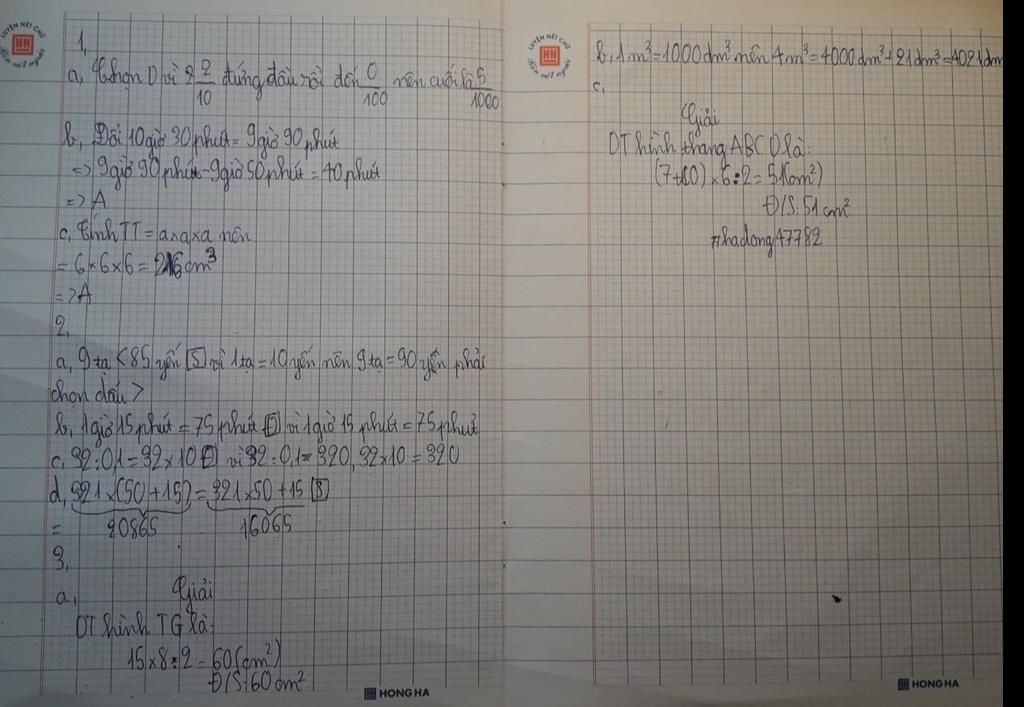 LUYỆN NÉT CHỮ
HH
Rèn nết người
1,
a, Chọn D vì 2 2/10 đứng đầu rồi đến 0/100 nên cuối là 5/1000
b, Đổi 10 giờ 30 phút = 9 giờ 90 phút
=> 9 giờ 90 phút - 9 giờ 50 phút = 40 phút
=> A
c, Tính TT = a×a×a nên
= 6×6×6 = 216 cm³
=> A
2,
a, 9 tạ < 85 yến [S] vì 1 tạ = 10 yến nên 9 tạ = 90 yến phải
chọn dấu >
b, 1 giờ 15 phút = 75 phút [Đ] vì 1 giờ 15 phút = 75 phút
c, 32 : 0,1 = 32 × 10 [Đ] vì 32 : 0,1 = 320, 32×10 = 320
d, 321 × (50 + 15) = 321 × 50 + 15 [S]
= 20865 16065
3,
a, Giải
DT hình TG là:
15×8:2 = 60 (cm²)
Đ/S: 60 cm²
HH HONG HA
LUYỆN NÉT CHỮ
HH
Rèn nết người
b, 1 m³ = 1000 dm³ nên 4 m³ = 4000 dm³ + 21 dm³ = 4021 dm
c,
Giải
DT hình thang ABCD là:
(7+10) × 6 : 2 = 51 (cm²)
Đ/S: 51 cm²
#hadong47782
HH HONG HA